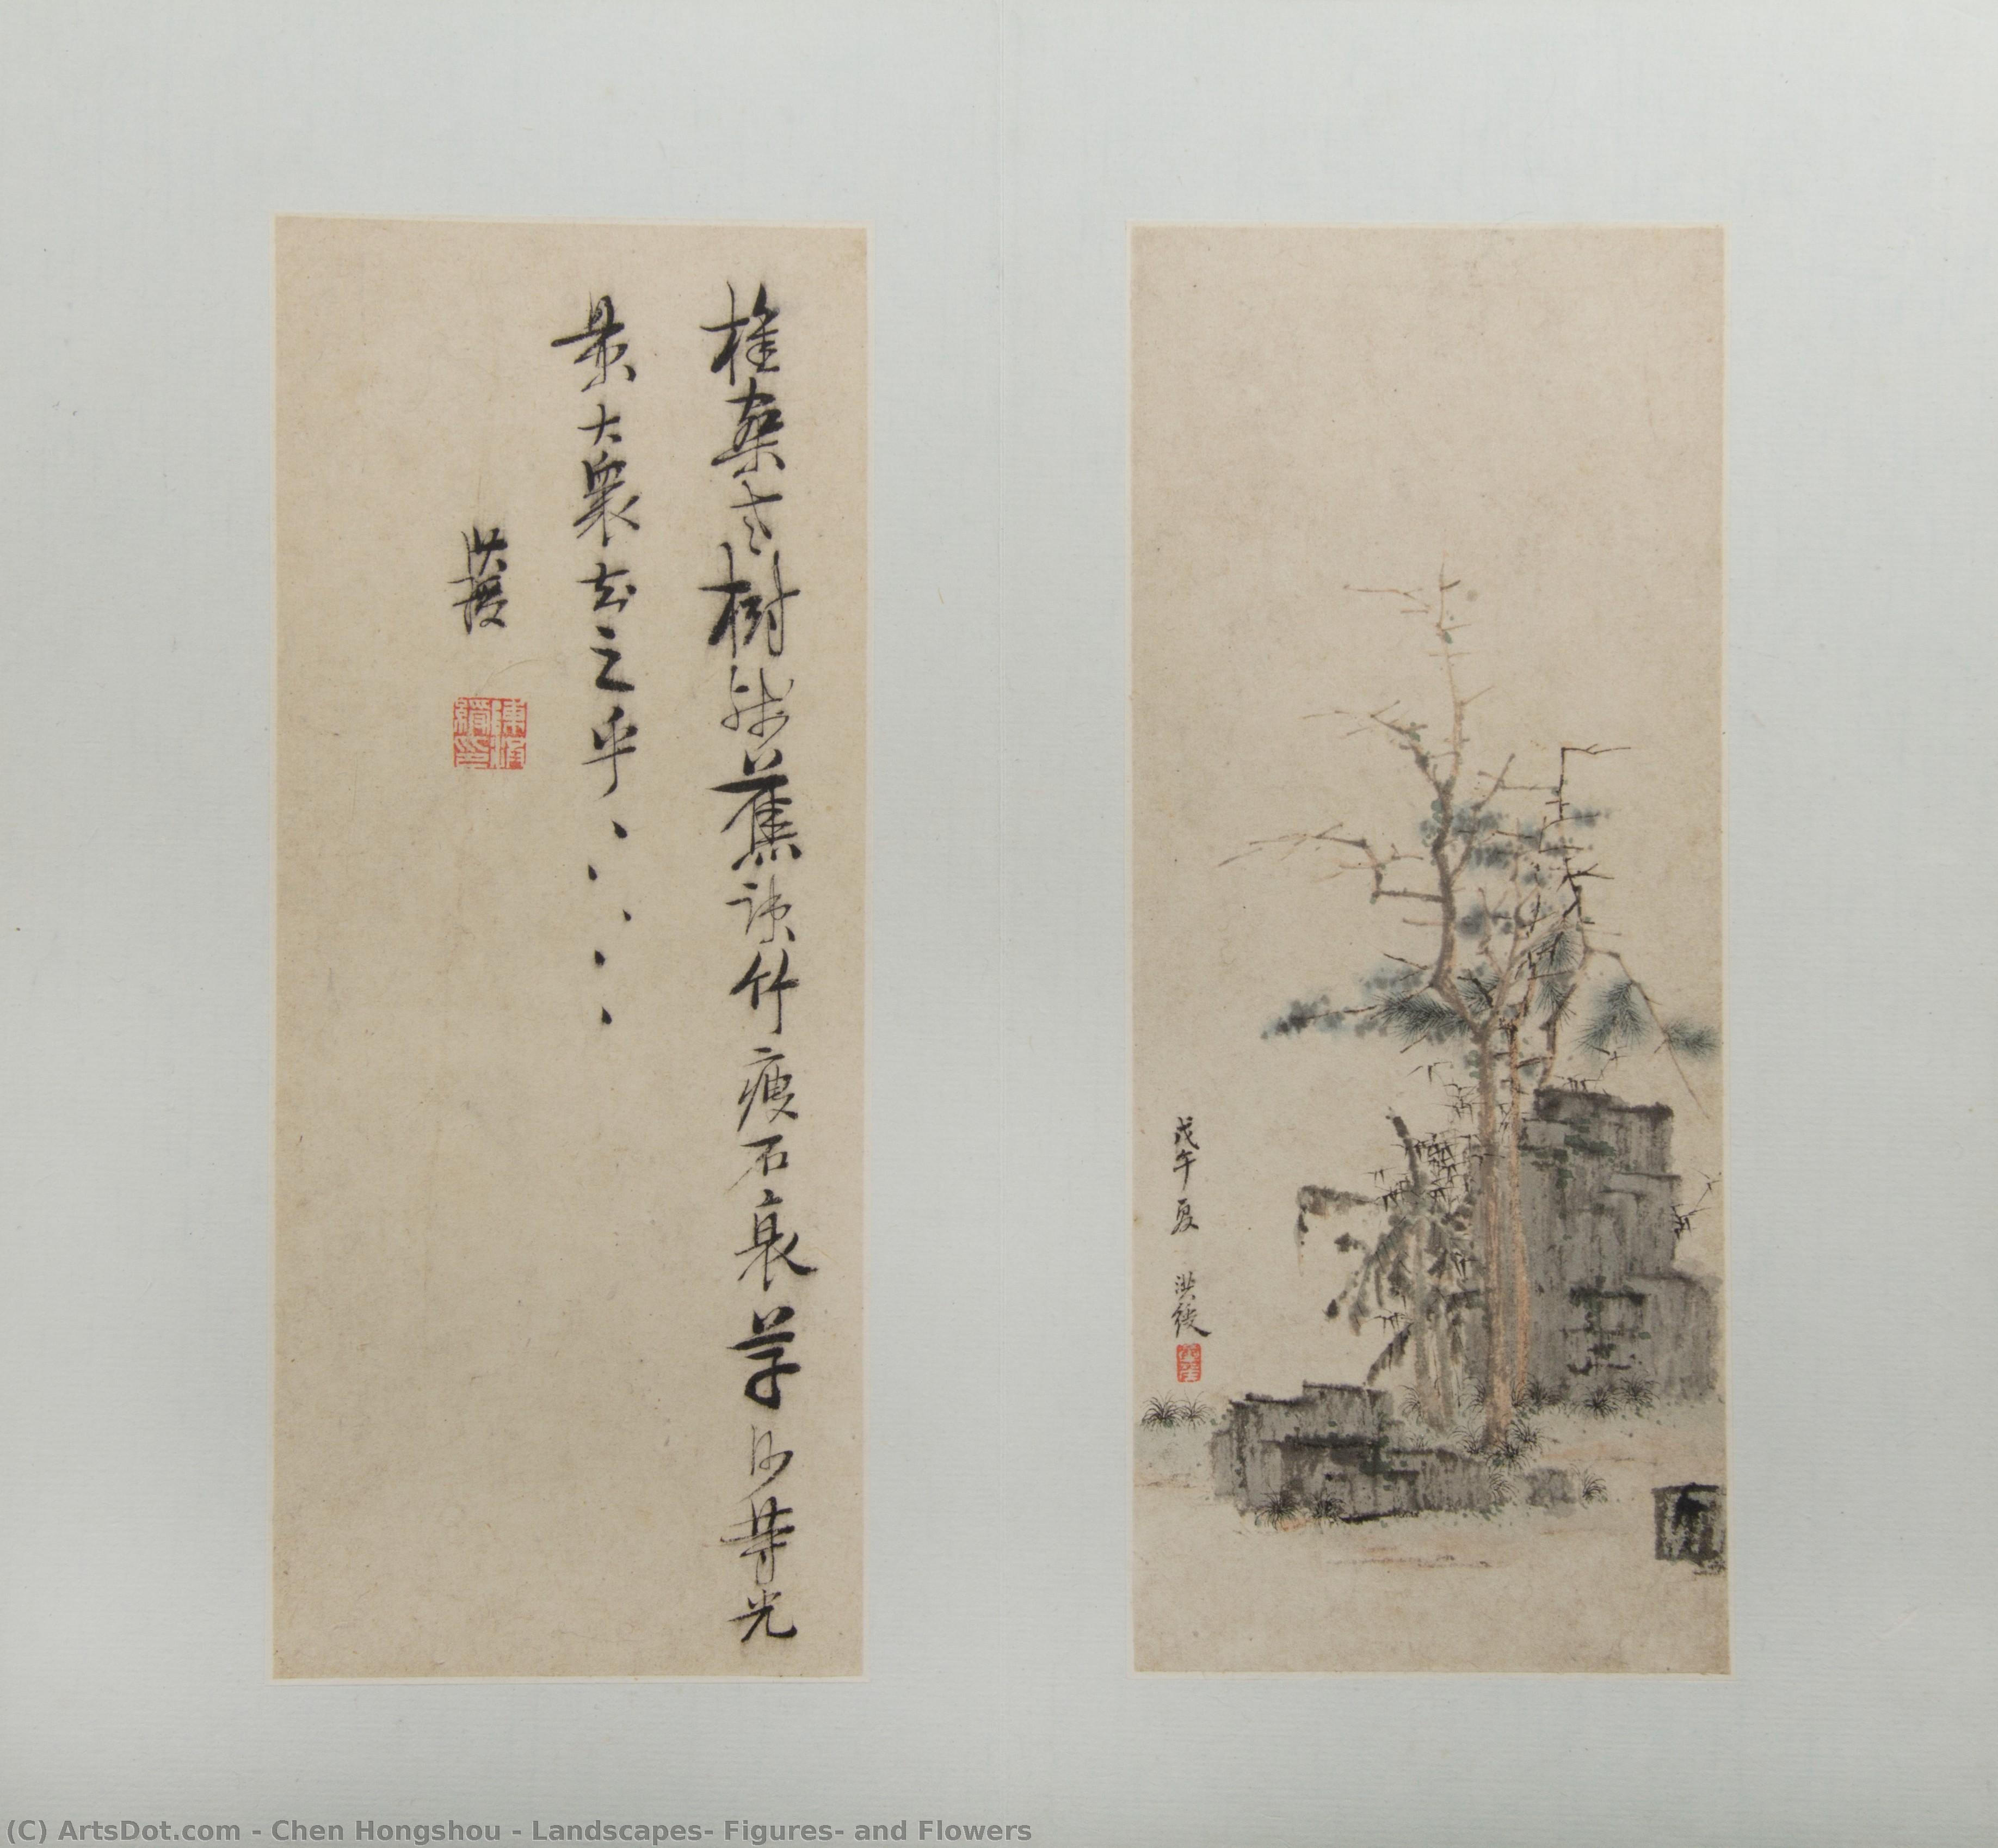 戊午夏 洪綬
老樹蕉疎竹瘦石衰草何等光
景大衆知之乎
洪綬
陳洪綬印
(C) ArtsDot.com - Chen Hongshou - Landscapes- Figures- and Flowers